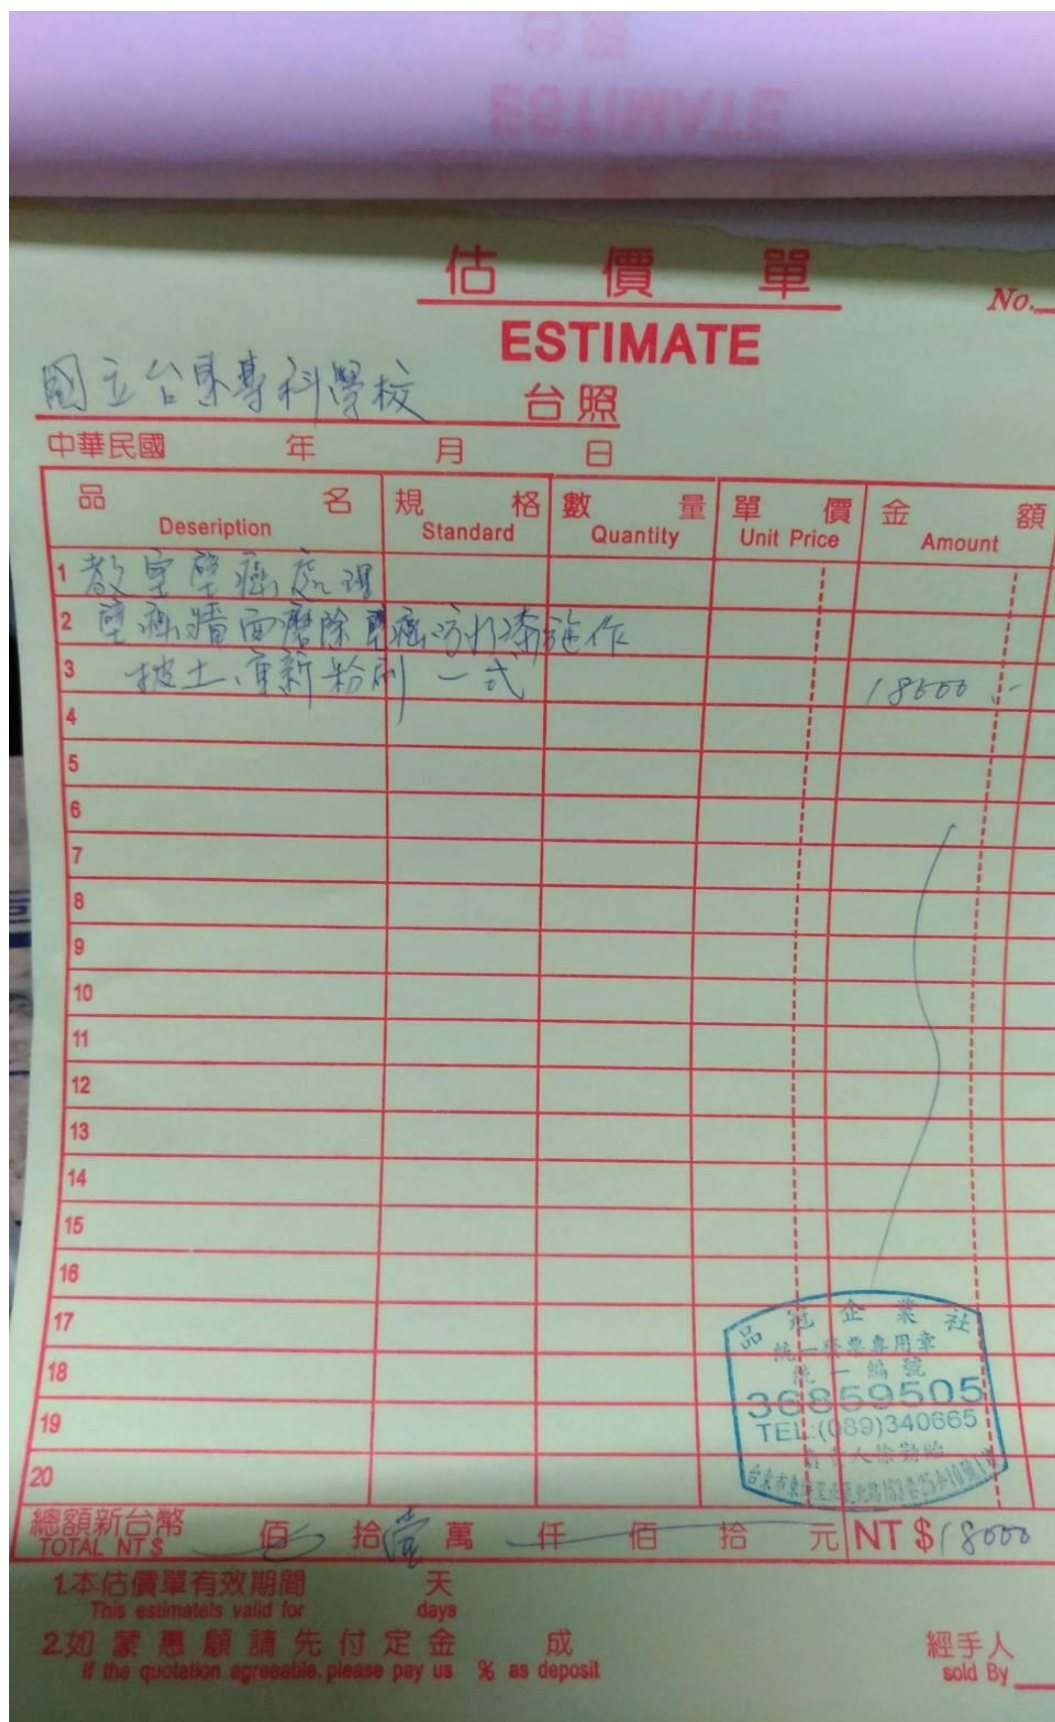 估價單
No.
ESTIMATE
國立台東專科學校 台照
中華民國 年 月 日
品名 規格 數量 單價 金額
Deseription Standard Quantity Unit Price Amount
1 教室壁癌處理
2 壁癌牆面磨除壁癌防水漆施作
3 披土、重新粉刷 一式 18000.-
4
5
6
7
8
9
10
11
12
13
14
15
16
17
18
19
20
品冠企業社
統一發票專用章
統一編號
36859505
TEL:(089)340665
總額新台幣 佰 拾壹萬 仟 佰 拾 元 NT$18000
TOTAL NT$
1.本估價單有效期間 天
This estimateis valid for days
2.如蒙惠顧請先付定金 成 經手人
If the quotation agreeable. please pay us % as deposit sold By